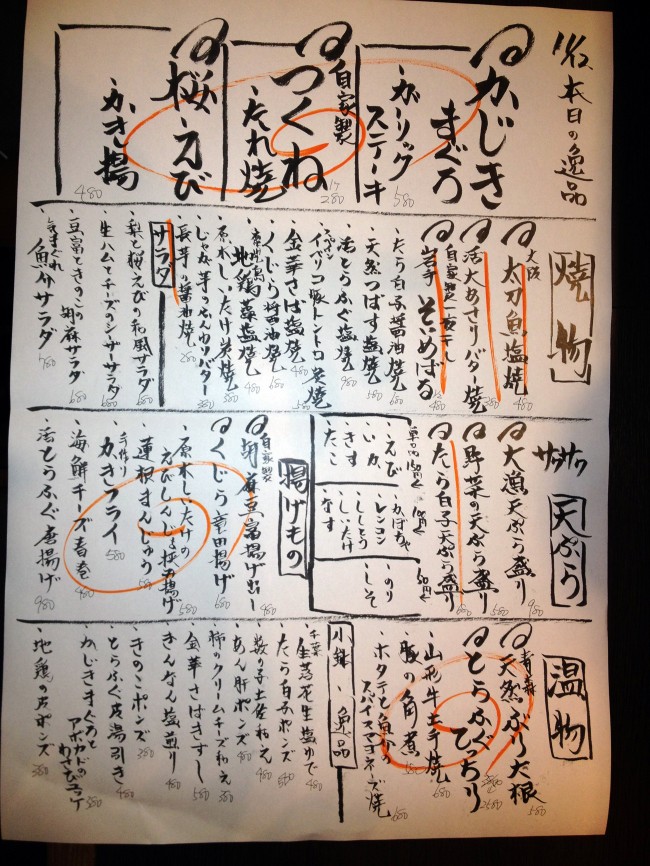 11/12 本日の逸品
かじき
まぐろ
・ガーリック
ステーキ
580
自家製
つくね
・たれ焼
280
桜えび
・かき揚
480
焼物
大阪
太刀魚塩焼
480
活大あさりバター焼
自家製一夜干し
岩手 そいめばる
・たら白子醤油焼
・天然つばす塩焼
580
・活とらふぐ塩焼
980
・スペイン
イベリコ豚トントロ炭焼
・金華さば塩焼
・くじら醤油焼
地鶏藻塩焼
・原木しいたけ炭焼
・じゃが芋のせんゆりバター
・長芋の醤油焼
サラダ
・梨と桜えびの和風サラダ
680
・生ハムとチーズのシーザーサラダ
680
・豆富ときのこの胡麻サラダ
680
・気まぐれ
魚介サラダ
780
サクサク 天ぷら
大漁天ぷら盛り
980
野菜の天ぷら盛り
580
たら白子天ぷら盛り
680
・えび
・いか
・きす
・たこ
・かぼちゃ
・レンコン
・ししとう
・しいたけ
・なす
・のり
・しそ
揚げもの
自家製
胡麻豆富揚げ出し
480
くじら竜田揚げ
680
・原木しいたけの
えびしんじょ挟み揚げ
・蓮根まんじゅう
580
・手作り
かきフライ
580
・海鮮チーズ春巻
480
・活とらふぐ唐揚げ
980
温物
青森
天然ぶり大根
580
とらふぐてっちり
・山形牛土手焼
680
・豚の角煮
・ホタテと魚介の
スパイスマヨネーズ焼
680
小鉢・逸品
・千葉
生落花生塩ゆで
480
・たら白子ポンズ
・数の子土佐和え
・あん肝ポンズ
・柿のクリームチーズ和え
380
・金華さばきずし
580
・ぎんなん塩煎り
・きのこポンズ
380
・とらふぐ皮湯引き
480
・かじきまぐろと
アボカドの
わさびユッケ
580
・地鶏の皮ポンズ
380